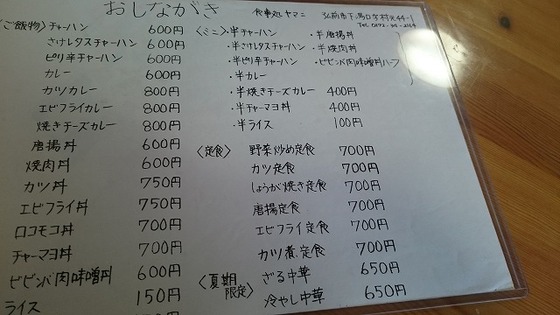 おしながき
食事処 ヤマニ
〈ご飯物〉チャーハン 600円
さけレタスチャーハン 600円
ピリ辛チャーハン 600円
カレー 600円
カツカレー 800円
エビフライカレー 800円
焼きチーズカレー 800円
唐揚丼 600円
焼肉丼 600円
カツ丼 750円
エビフライ丼 750円
ロコモコ丼 700円
チャーマヨ丼 700円
ビビンバ肉味噌丼 600円
ライス 150円
〈ミニ〉・半チャーハン ・半唐揚丼
・半さけレタスチャーハン ・半焼肉丼
・半ピリ辛チャーハン ・ビビンバ肉味噌丼ハーフ
・半カレー
・半焼きチーズカレー 400円
・半チャーマヨ丼 400円
・半ライス 100円
〈定食〉 野菜炒め定食 700円
カツ定食 700円
しょうが焼き定食 700円
唐揚定食 700円
エビフライ定食 700円
カツ煮定食 700円
〈夏期限定〉 ざる中華 650円
冷やし中華 650円